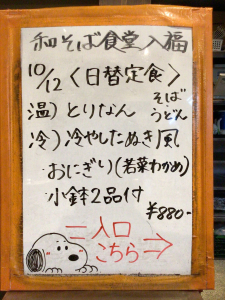 和そば食堂入福
10/12〈日替定食〉
温)とりなん そば うどん
冷)冷やしたぬき風
・おにぎり(若菜わかめ)
・小鉢2品付
¥880-
入口
こちら